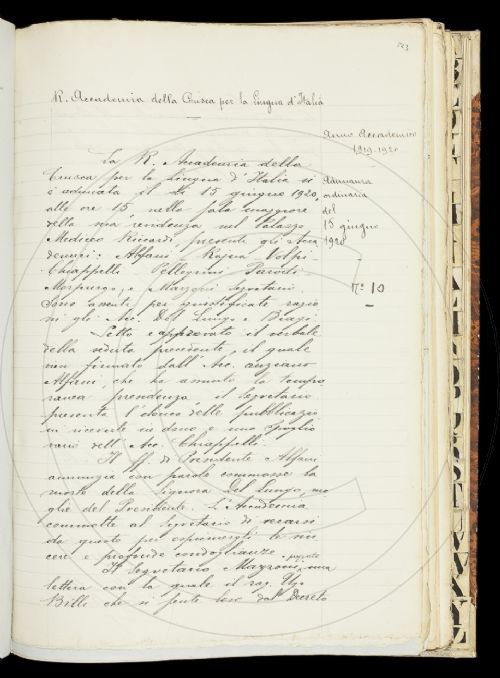 R. Accademia della Crusca per la Lingua d'Italia
Anno Accademico
1919-1920
Adunanza
ordinaria
del
15 giugno
1920
N.° 10
La R. Accademia della
Crusca per la Lingua d'Italia si
è adunata il 15 giugno 1920,
alle ore 15, nella sala maggiore
della sua residenza nel Palazzo
Mediceo Riccardi, presenti gli Acca
demici: Alfani Rajna Volpi
Chiappelli Pellegrini Parodi
Morpurgo, e Mazzoni Segretario.
Sono assenti per giustificate ragio
ni gli Acc. Del Lungo e Biagi.
Letto e approvato il verbale
della seduta precedente, il quale
vien firmato dall'Acc. anziano
Alfani, che ha assunto la tempo
ranea presidenza, il Segretario
presenta l'elenco delle pubblicazio
ni ricevute in dono, e uno spoglio
vario dell'Acc. Chiappelli.
Il ff. di Presidente Alfani
annunzia con parole commosse la
morte della Signora Del Lungo, mo
glie del Presidente. L'Accademia
commette al Segretario di recarsi
da questo per esprimergli le sin
cere e profonde condoglianze.
Il Segretario Mazzoni, una
lettera con la quale il rag. Ug.
Billi che si sente leso dal Decreto